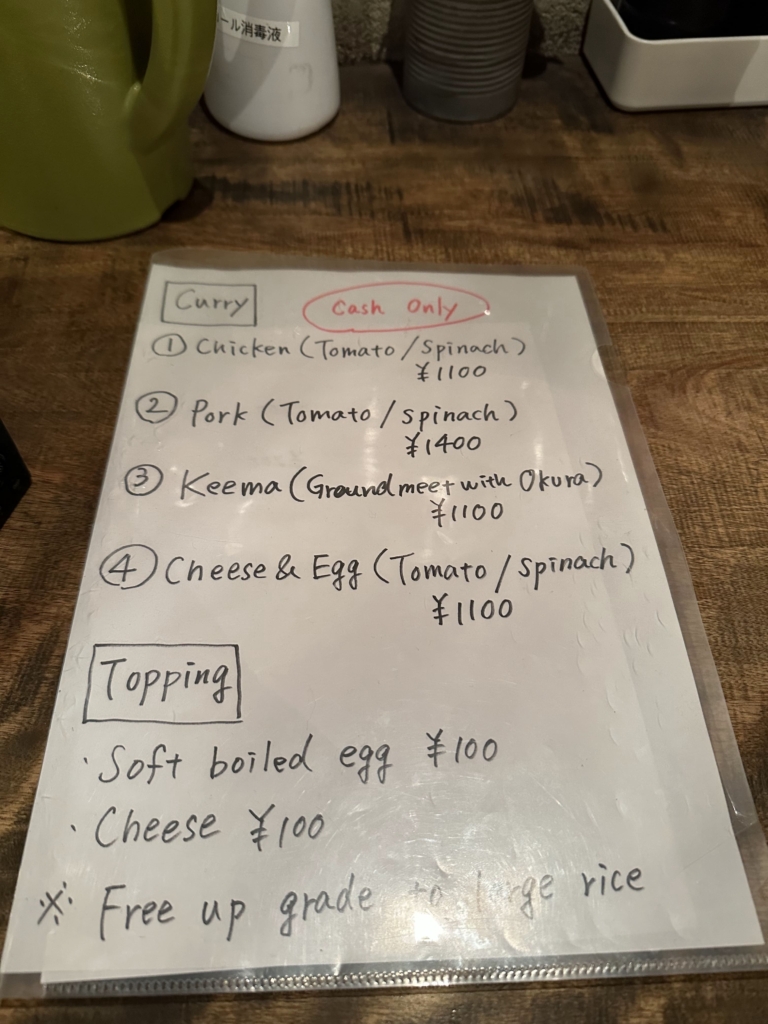 ール消毒液
Curry
Cash Only
① Chicken (Tomato / Spinach)
¥1100
② Pork (Tomato / Spinach)
¥1400
③ Keema (Ground meet with Okura)
¥1100
④ Cheese & Egg (Tomato / Spinach)
¥1100
Topping
・Soft boiled egg ¥100
・Cheese ¥100
※ Free up grade to large rice